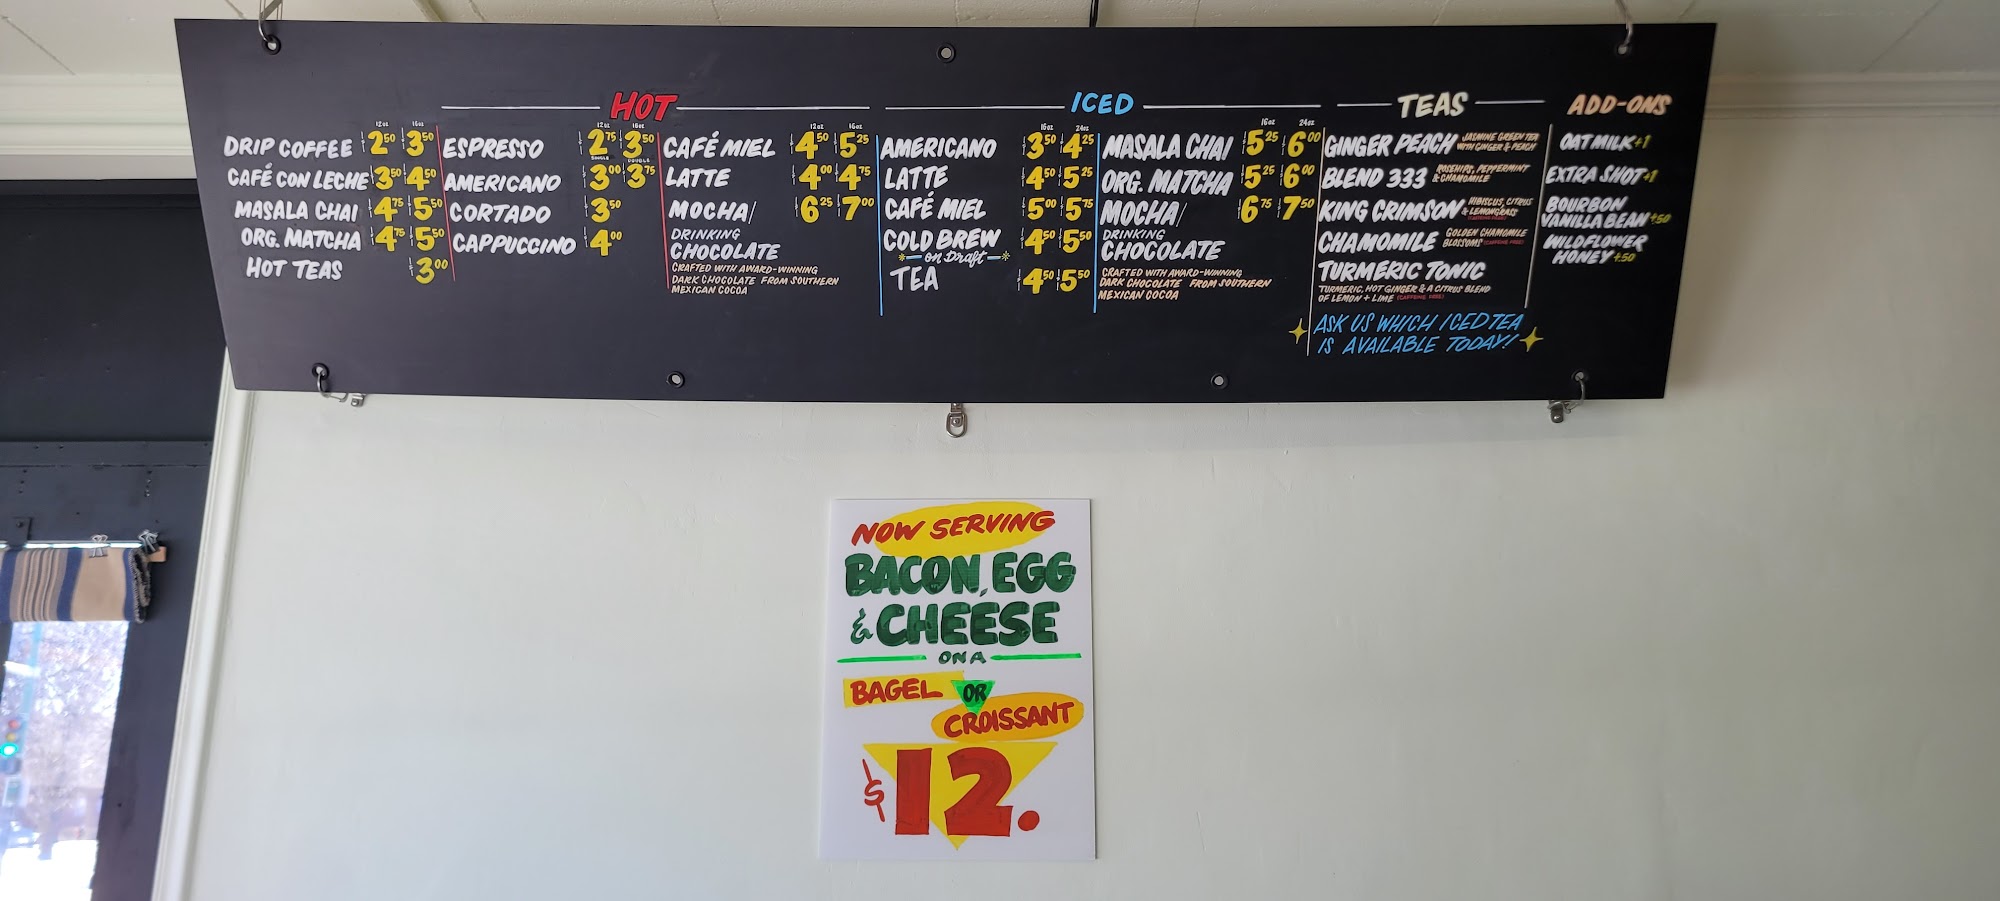 HOT
12oz 16oz
DRIP COFFEE $2.50 $3.50
CAFÉ CON LECHE $3.50 $4.50
MASALA CHAI $4.75 $5.50
ORG. MATCHA $4.75 $5.50
HOT TEAS $3.00
12oz 16oz
ESPRESSO $2.75 $3.50
SINGLE DOUBLE
AMERICANO $3.00 $3.75
CORTADO $3.50
CAPPUCCINO $4.00
12oz 16oz
CAFÉ MIEL $4.50 $5.25
LATTE $4.00 $4.75
MOCHA/ $6.25 $7.00
DRINKING
CHOCOLATE
CRAFTED WITH AWARD-WINNING
DARK CHOCOLATE FROM SOUTHERN
MEXICAN COCOA
ICED
16oz 24oz
AMERICANO $3.50 $4.25
LATTE $4.50 $5.25
CAFÉ MIEL $5.00 $5.75
COLD BREW $4.50 $5.50
on Draft
TEA $4.50 $5.50
16oz 24oz
MASALA CHAI $5.25 $6.00
ORG. MATCHA $5.25 $6.00
MOCHA/ $6.75 $7.50
DRINKING
CHOCOLATE
CRAFTED WITH AWARD-WINNING
DARK CHOCOLATE FROM SOUTHERN
MEXICAN COCOA
TEAS
GINGER PEACH JASMINE GREEN TEA
WITH GINGER & PEACH
BLEND 333 ROSEHIPS, PEPPERMINT
& CHAMOMILE
KING CRIMSON HIBISCUS, CITRUS
& LEMONGRASS
(CAFFEINE FREE)
CHAMOMILE GOLDEN CHAMOMILE
BLOSSOMS (CAFFEINE FREE)
TURMERIC TONIC
TURMERIC, HOT GINGER & A CITRUS BLEND
OF LEMON + LIME (CAFFEINE FREE)
ASK US WHICH ICED TEA
IS AVAILABLE TODAY!
ADD-ONS
OAT MILK +1
EXTRA SHOT +1
BOURBON
VANILLA BEAN +.50
WILDFLOWER
HONEY +.50
NOW SERVING
BACON, EGG
& CHEESE
ON A
BAGEL OR
CROISSANT
$12.